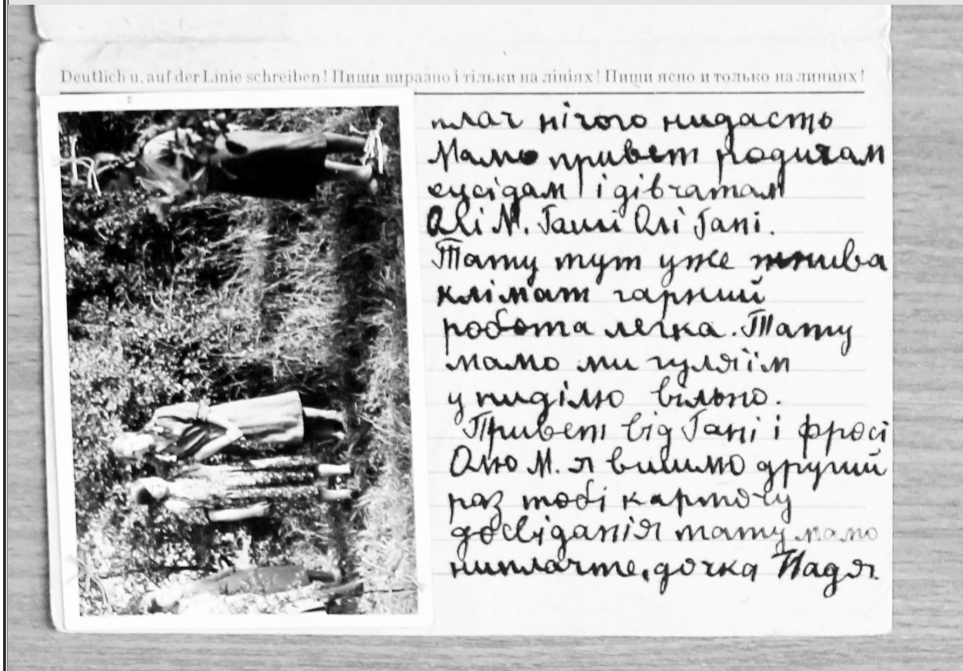 Deutlich u. auf der Linie schreiben! Пиши виразно і тільки на лініях! Пиши ясно и только на линиях!
плач нічого нидасть
Мамо привет родичам
сусідам і дівчатам
Олі М. Гаші Олі Гані.
Тату тут уже жнива
клімат гарний
робота легка. Тату
мамо ми гуляїм
у ниділю вільно.
Привет від Гані і фросі
Олю М. я вишмо другий
раз тобі карточу
досвіданія тату мамо
ниплачте, дочка Надя.